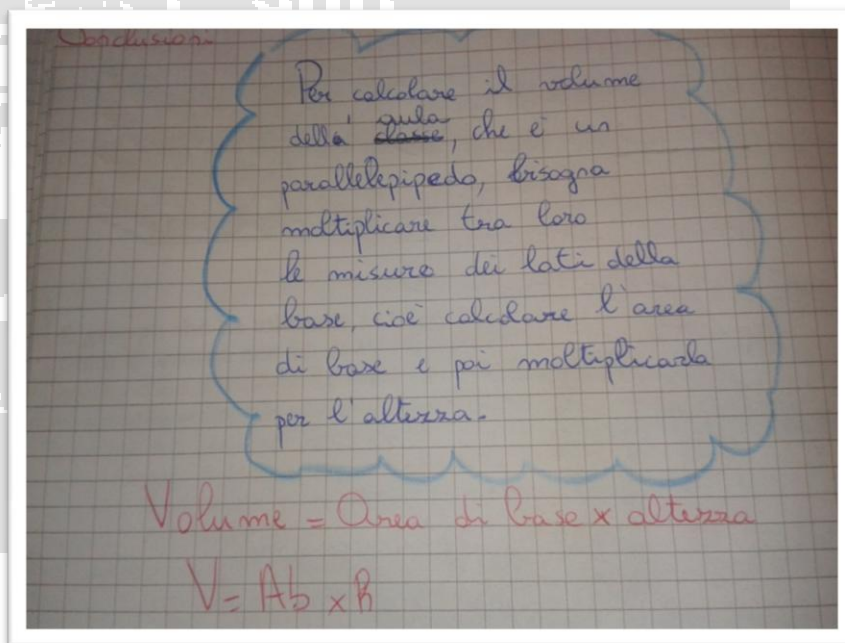 Conclusioni
Per calcolare il volume
aula
della classe, che è un
parallelepipedo, bisogna
moltiplicare tra loro
le misure dei lati della
base, cioè calcolare l'area
di base e poi moltiplicarla
per l'altezza.
Volume = Area di base x altezza
V = Ab x h